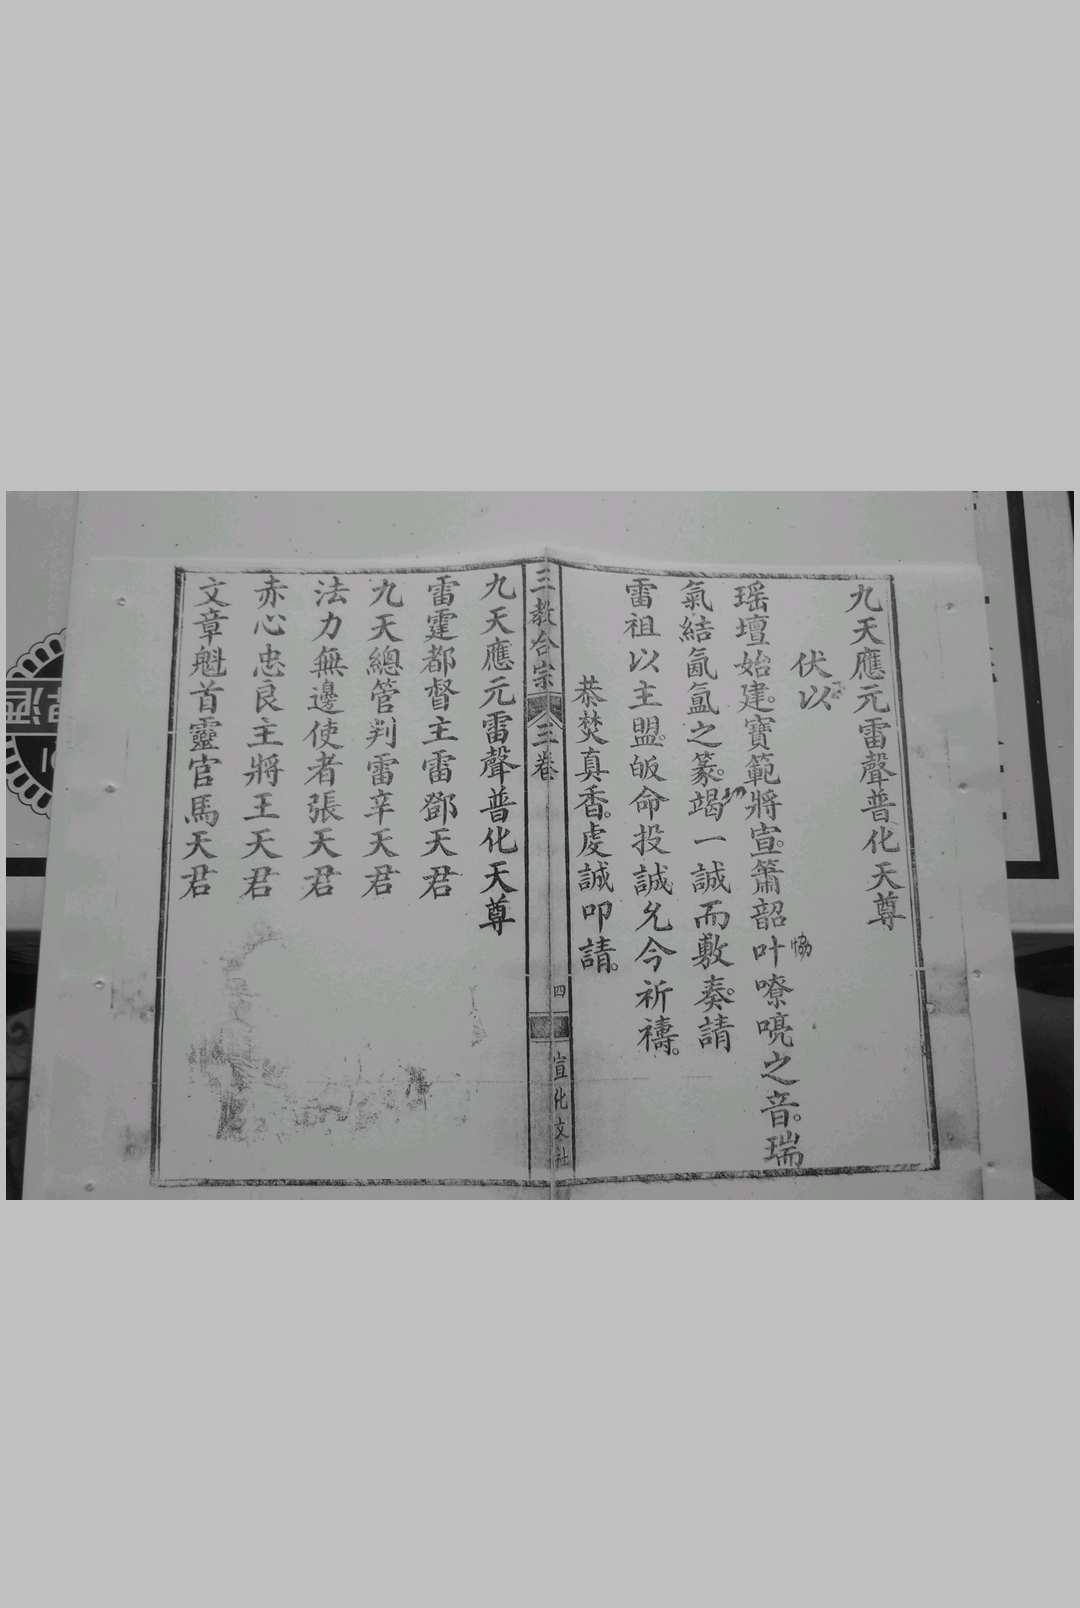 九天應元雷聲普化天尊
伏以
瑶壇始建。寶範將宣。簫韶叶嘹喨之音。瑞
協
氣結氤氳之篆。竭一誠而敷奏。請
雷祖以主盟。皈命投誠允今祈禱。
恭焚真香。虔誠叩請。
三教合宗 三卷 四 宣化文社
九天應元雷聲普化天尊
雷霆都督主雷鄧天君
九天總管判雷辛天君
法力無邊使者張天君
赤心忠良主將王天君
文章魁首靈官馬天君